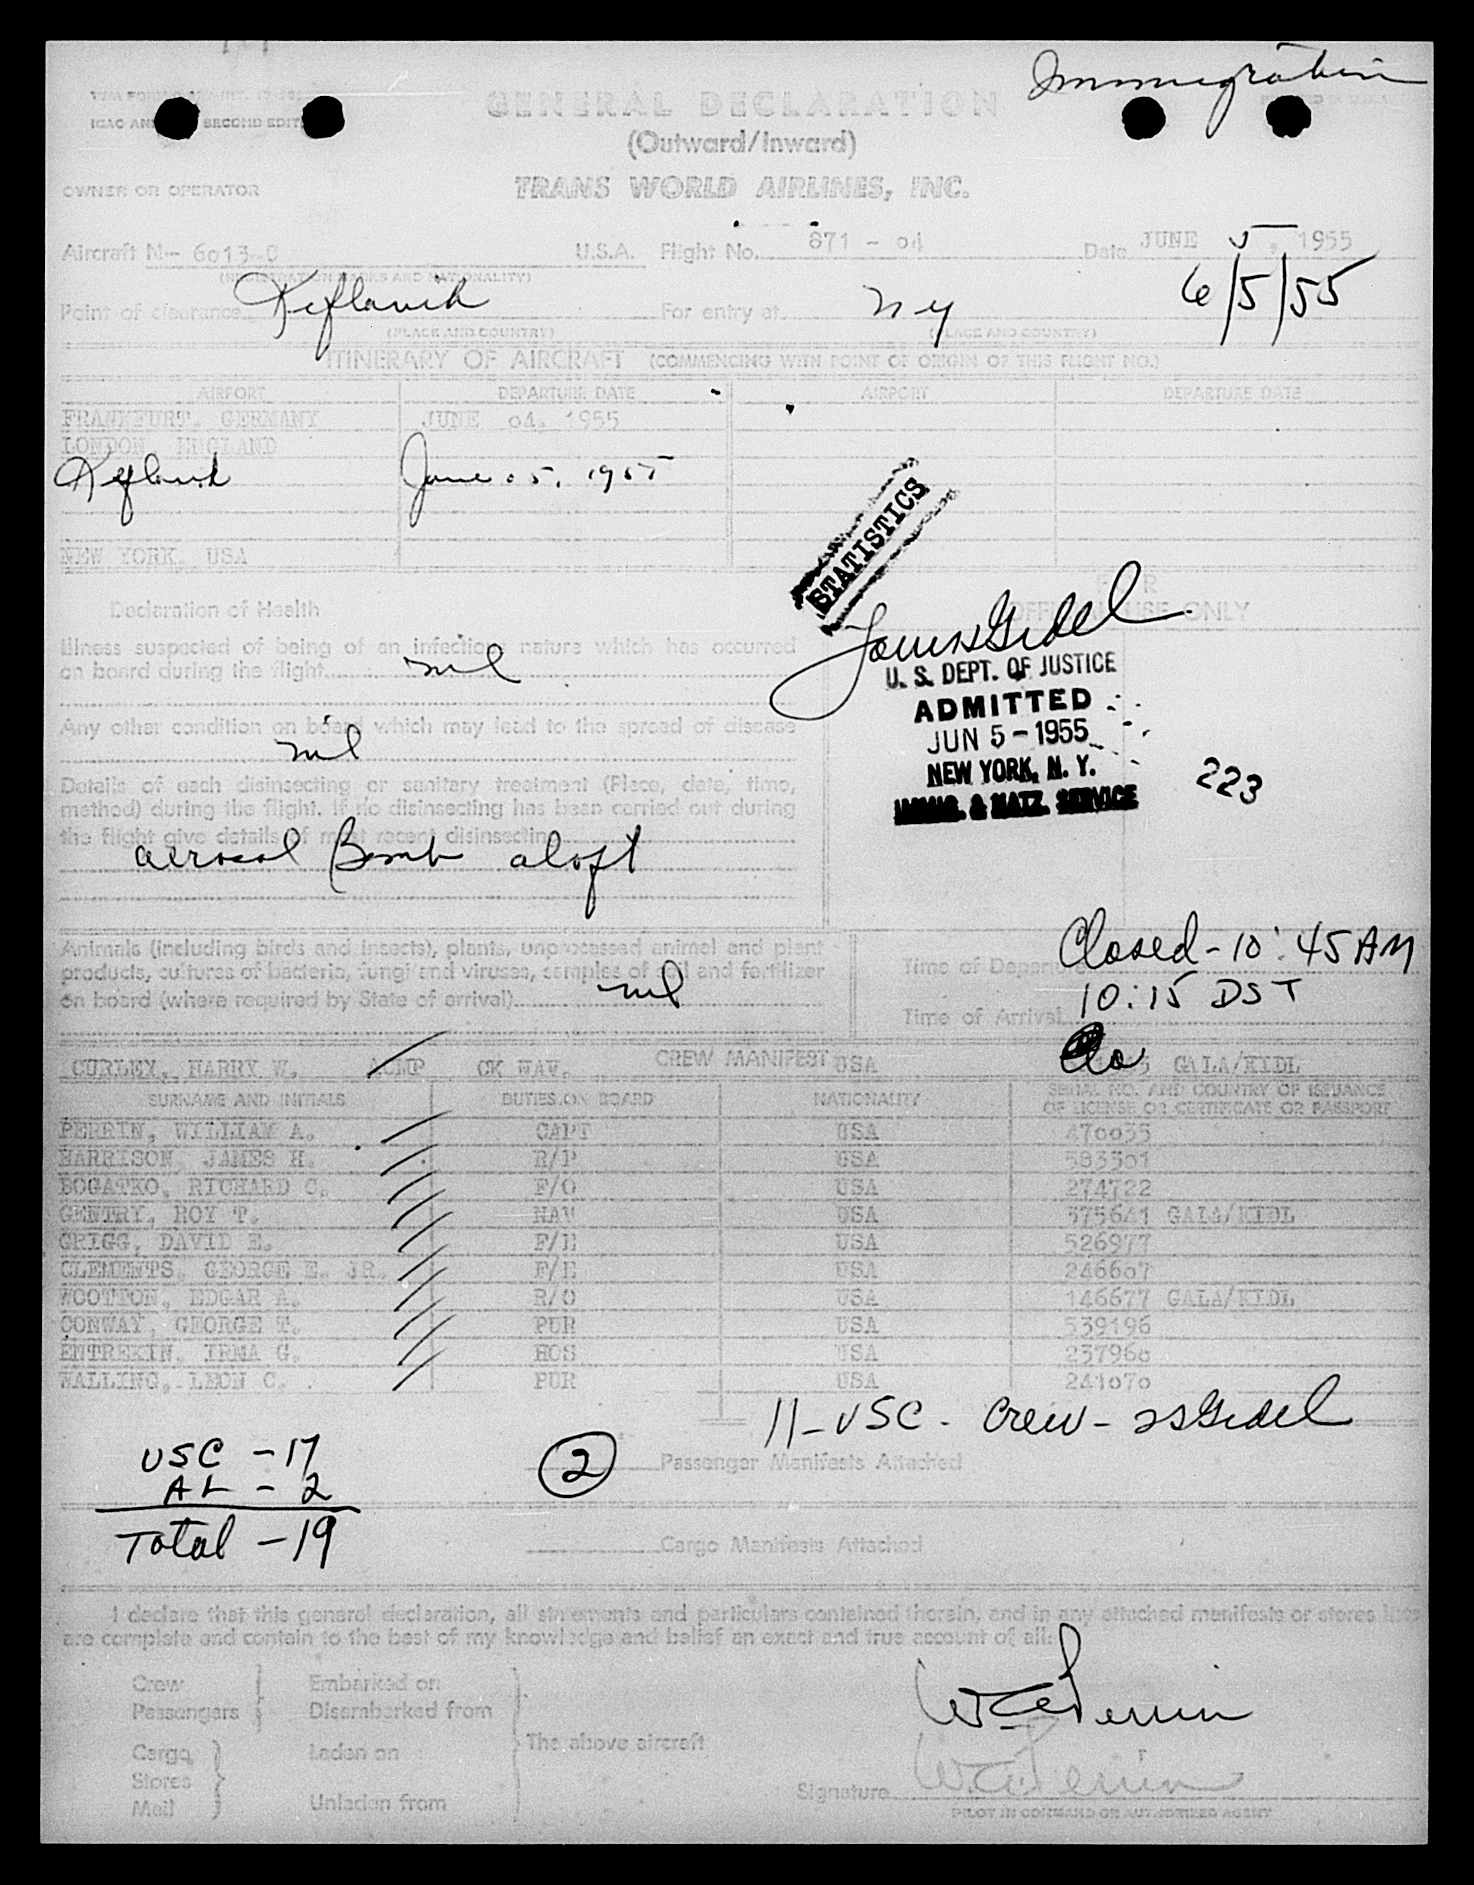 Immigration
ICAO SECOND EDIT
GENERAL DECLARATION
(Outward/Inward)
OWNER OR OPERATOR
TRANS WORLD AIRLINES, INC.
Aircraft N- 6013-C U.S.A. Flight No. 871 - 04 Date JUNE 5, 1955
(REGISTRATION MARKS AND NATIONALITY)
Point of clearance Keflavik For entry at NY 6/5/55
(PLACE AND COUNTRY) (PLACE AND COUNTRY)
ITINERARY OF AIRCRAFT (COMMENCING WITH POINT OF ORIGIN OF THIS FLIGHT NO.)
AIRPORT DEPARTURE DATE AIRPORT DEPARTURE DATE
FRANKFURT, GERMANY JUNE 04, 1955
LONDON, ENGLAND
Keflavik June 05, 1955
NEW YORK, USA
STATISTICS
FOR
OFFICIAL USE ONLY
Declaration of Health
Illness suspected of being of an infectious nature which has occurred
on board during the flight nil
Any other condition on board which may lead to the spread of disease
nil
Details of each disinsecting or sanitary treatment (Place, date, time,
method) during the flight. If no disinsecting has been carried out during
the flight give details of most recent disinsecting
aerosol Bomb aloft
U. S. DEPT. OF JUSTICE
ADMITTED
JUN 5 - 1955
NEW YORK, N. Y.
IMMIG. & NATZ. SERVICE
223
Animals (including birds and insects), plants, unprocessed animal and plant
products, cultures of bacteria, fungi and viruses, samples of soil and fertilizer
on board (where required by State of arrival) nil
Time of Departure Closed - 10:45 AM
10:15 DST
Time of Arrival
CREW MANIFEST
CURLEY, HARRY W. CK NAV. USA GALA/KIDL
SURNAME AND INITIALS DUTIES ON BOARD NATIONALITY SERIAL NO. AND COUNTRY OF ISSUANCE
OF LICENSE OR CERTIFICATE OR PASSPORT
PERRIN, WILLIAM A. CAPT USA 470035
HARRISON, JAMES H. R/P USA 583501
BOGATKO, RICHARD C. F/O USA 274722
GENTRY, ROY T. NAV USA 375641 GALA/KIDL
GRIGG, DAVID E. F/E USA 526977
CLEMENTS, GEORGE E. JR. F/E USA 246607
WOOTTON, EDGAR A. R/O USA 146677 GALA/KIDL
CONWAY, GEORGE T. PUR USA 539196
ENTREKIN, IRMA G. HOS USA 237960
WALLING, LEON C. PUR USA 241070
11 - USC - Crew -
USC - 17
AL - 2
Total - 19
2 Passenger Manifests Attached
Cargo Manifests Attached
I declare that this general declaration, all statements and particulars contained therein, and in any attached manifests or stores lists
are complete and contain to the best of my knowledge and belief an exact and true account of all:
Crew Embarked on
Passengers Disembarked from
Cargo, Laden on
Stores
Mail Unladen from
The above aircraft
W A Perrin
Signature W A Perrin
PILOT IN COMMAND OR AUTHORIZED AGENT